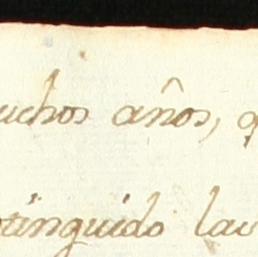 uchos años, q
stinguido lau